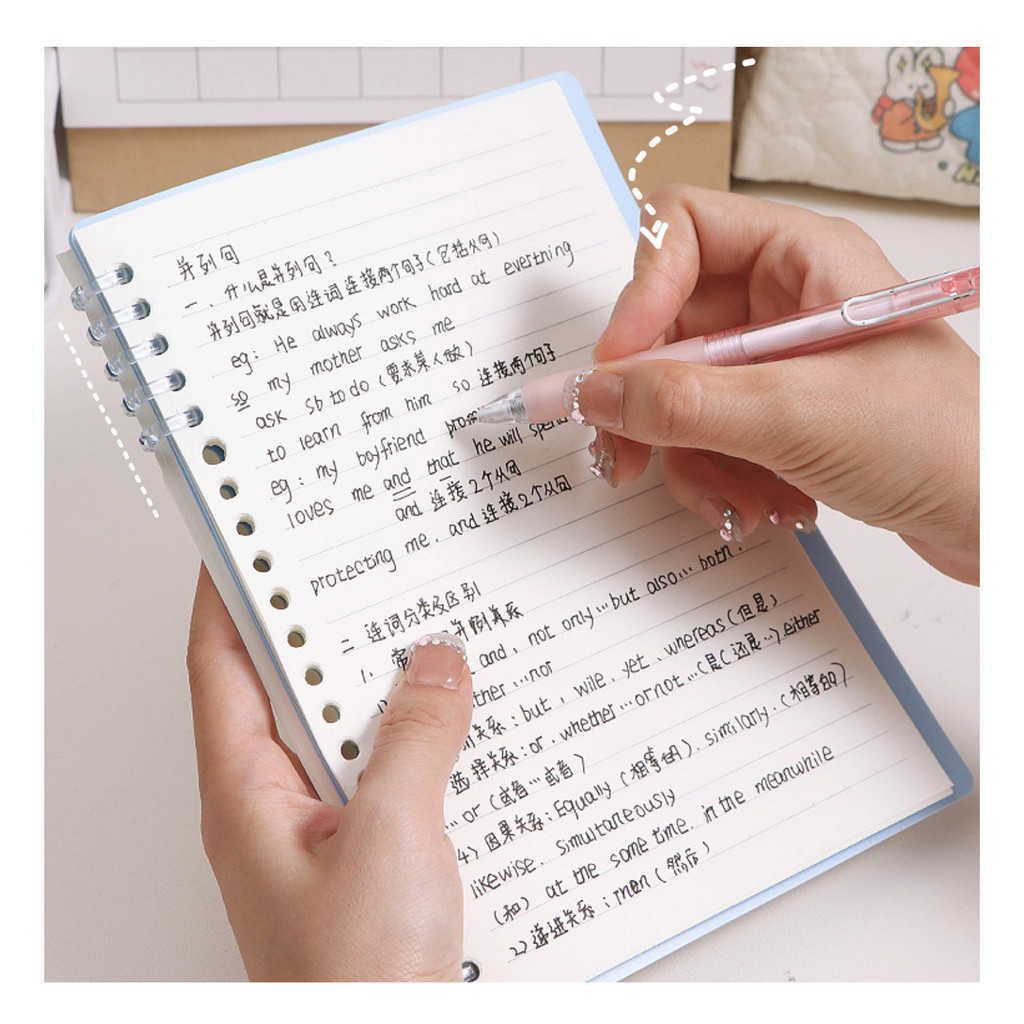 并列句
一、什么是并列句？
并列句就是用连词连接两个句子（包括从句）
eg: He always work hard at everthing
so my mother asks me
ask sb to do（要求某人做）
to learn from him so 连接两个句子
eg: my boyfriend
loves me and that he will
and 连接2个从句
protecting me. and 连接2个从句
二 连词分类及区别
1、
and, not only...but also... both.
...nor
关系: but, wile, yet, whereas（但是）
选择关系: or, whether...or not...（是（还是...）either
...or（或者...或者）
4）因果关系: Equally（相等的）, similarly.（相等的）
likewise, simultaneously
（和）at the same time, in the meanwhile
2）递进关系: then（然后）